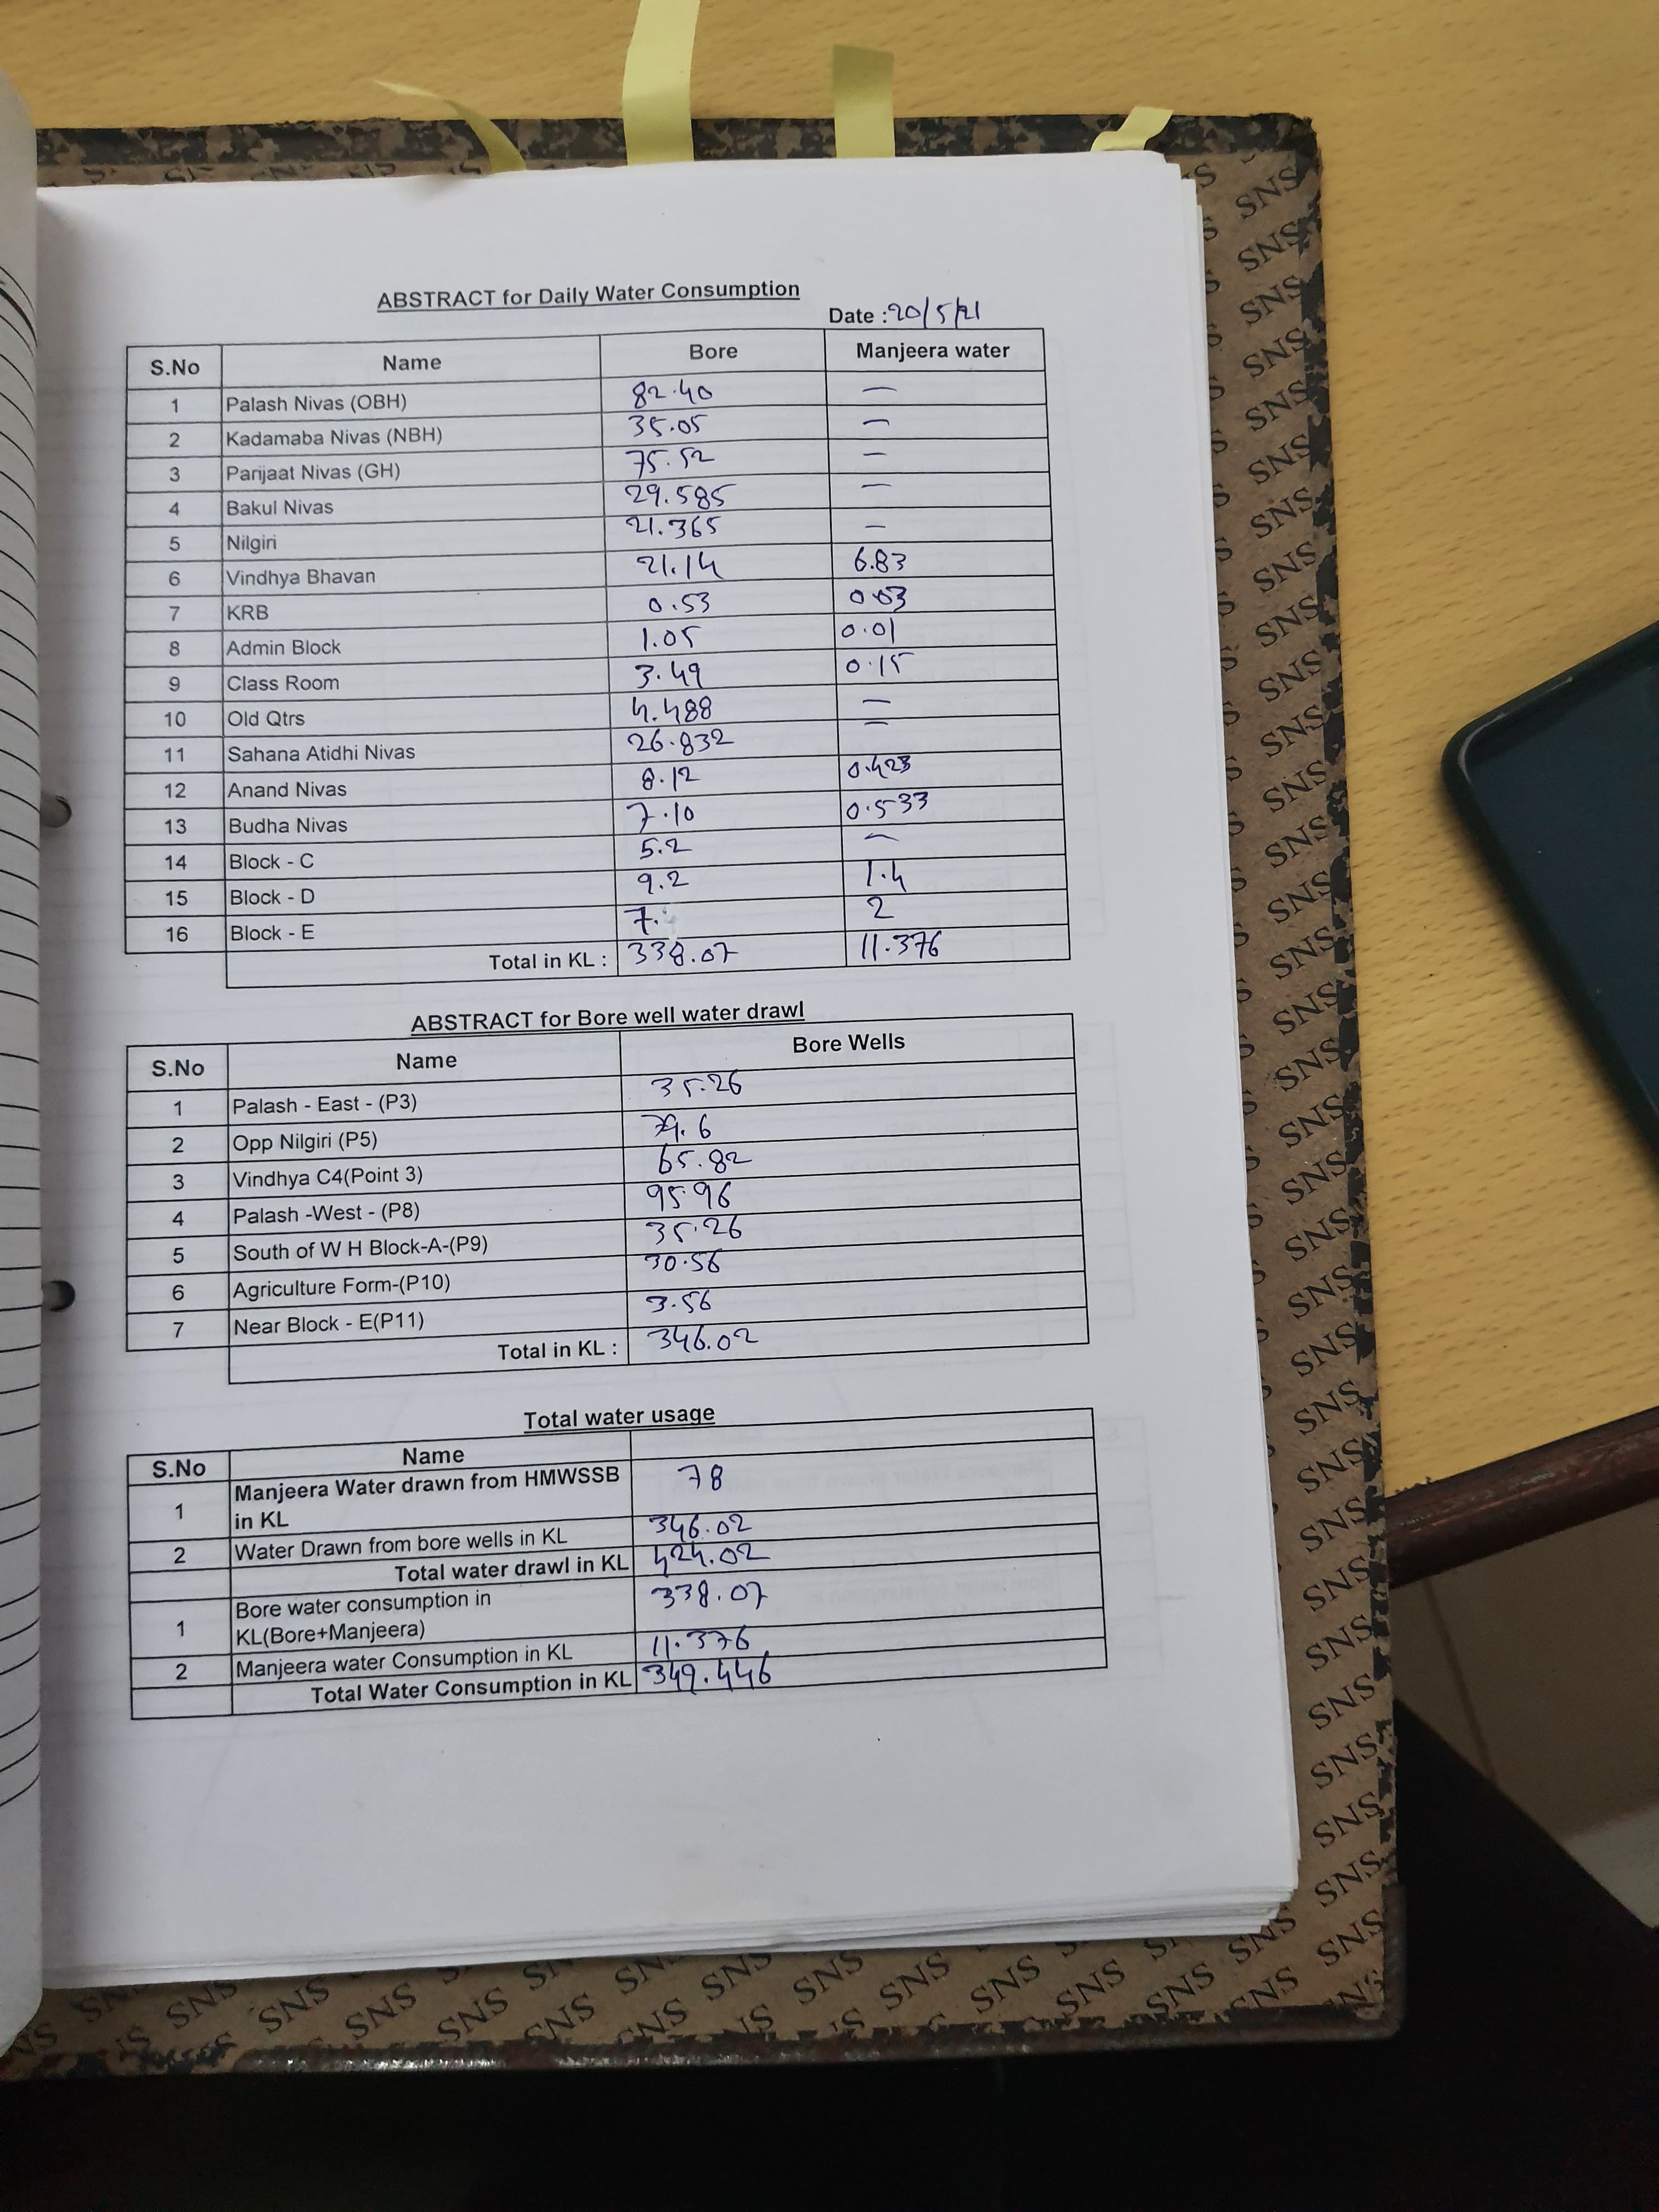 ABSTRACT for Daily Water Consumption
Date : 20/5/21
S.No Name Bore Manjeera water
1 Palash Nivas (OBH) 82.40 —
2 Kadamaba Nivas (NBH) 35.05 —
3 Parijaat Nivas (GH) 75.52 —
4 Bakul Nivas 29.585 —
5 Nilgiri 21.365 —
6 Vindhya Bhavan 21.14 6.83
7 KRB 0.53 0.03
8 Admin Block 1.05 0.01
9 Class Room 3.49 0.15
10 Old Qtrs 4.488 —
11 Sahana Atidhi Nivas 26.832 —
12 Anand Nivas 8.12 0.423
13 Budha Nivas 7.10 0.533
14 Block - C 5.2 —
15 Block - D 9.2 1.4
16 Block - E 7. 2
Total in KL : 338.07 11.376
ABSTRACT for Bore well water drawl
S.No Name Bore Wells
1 Palash - East - (P3) 35.26
2 Opp Nilgiri (P5) 79.6
3 Vindhya C4(Point 3) 65.82
4 Palash -West - (P8) 95.96
5 South of W H Block-A-(P9) 35.26
6 Agriculture Form-(P10) 30.56
7 Near Block - E(P11) 3.56
Total in KL : 346.02
Total water usage
S.No Name
1 Manjeera Water drawn from HMWSSB
in KL 78
2 Water Drawn from bore wells in KL 346.02
Total water drawl in KL 424.02
1 Bore water consumption in
KL(Bore+Manjeera) 338.07
2 Manjeera water Consumption in KL 11.376
Total Water Consumption in KL 349.446
SNS